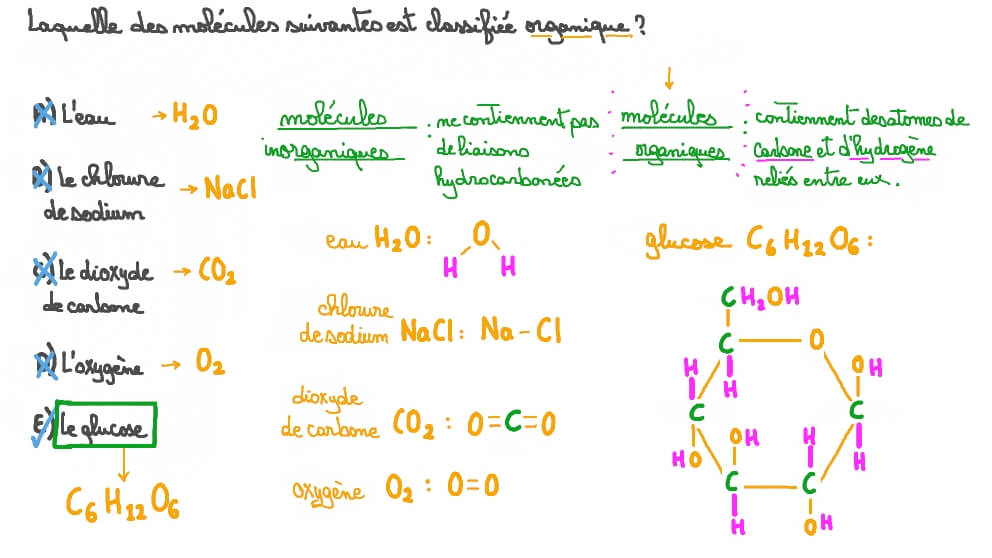 Laquelle des molécules suivantes est classifiée organique ?
A) L'eau → H₂O
B) Le chlorure de sodium → NaCl
C) Le dioxyde de carbone → CO₂
D) L'oxygène → O₂
E) Le glucose
C₆H₁₂O₆
molécules inorganiques : ne contiennent pas
de liaisons
hydrocarbonées
eau H₂O :
O
H H
chlorure
de sodium NaCl : Na – Cl
dioxyde
de carbone CO₂ : O=C=O
oxygène O₂ : O=O
molécules organiques : contiennent des atomes de
carbone et d'hydrogène
reliés entre eux.
glucose C₆H₁₂O₆ :
CH₂OH
C O
H H OH
C C
HO OH H H
C C
H OH